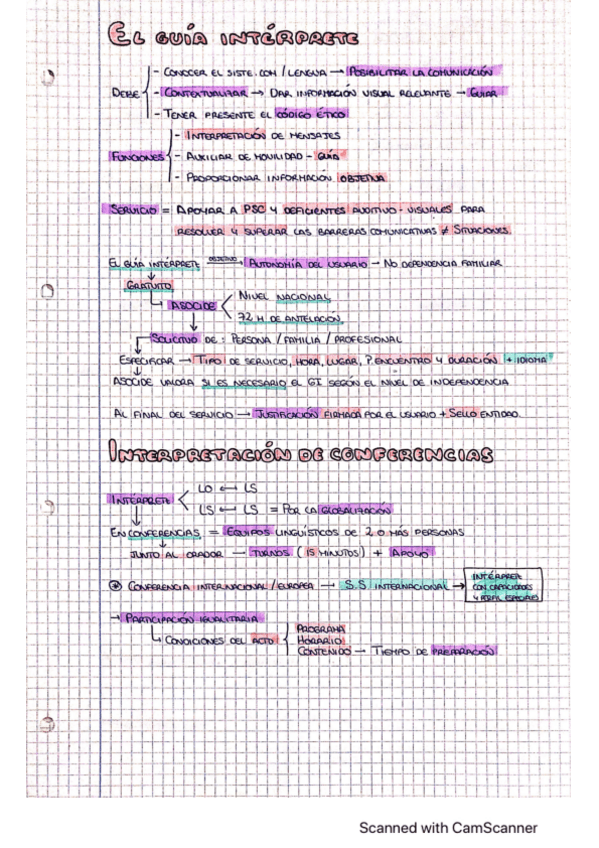 EL GUÍA INTÉRPRETE
- CONOCER EL SISTE. COM / LENGUA → POSIBILITAR LA COMUNICACIÓN
DEBE - CONTEXTUALIZAR → DAR INFORMACIÓN VISUAL RELEVANTE → GUIAR
- TENER PRESENTE EL CÓDIGO ÉTICO
- INTERPRETACIÓN DE MENSAJES
FUNCIONES - AUXILIAR DE MOVILIDAD - GUÍA
- PROPORCIONAR INFORMACIÓN OBJETIVA
SERVICIO = APOYAR A PSC Y DEFICIENTES AUDITIVO-VISUALES PARA
RESOLVER Y SUPERAR LAS BARRERAS COMUNICATIVAS ≠ SITUACIONES.
EL GUÍA INTÉRPRETE OBJETIVO → AUTONOMÍA DEL USUARIO → NO DEPENDENCIA FAMILIAR
GRATUITO
ASOCIDE < NIVEL NACIONAL
72 H DE ANTELACIÓN
SOLICITUD DE: PERSONA / FAMILIA / PROFESIONAL
ESPECIFICAR → TIPO DE SERVICIO, HORA, LUGAR, P. ENCUENTRO Y DURACIÓN (+ IDIOMA)
ASOCIDE VALORA SI ES NECESARIO EL GI SEGÚN EL NIVEL DE INDEPENDENCIA
AL FINAL DEL SERVICIO → JUSTIFICACIÓN FIRMADA POR EL USUARIO + SELLO ENTIDAD.
INTERPRETACIÓN DE CONFERENCIAS
LO ⟷ LS
INTÉRPRETE <
LS ⟷ LS = POR LA GLOBALIZACIÓN
EN CONFERENCIAS = EQUIPOS LINGÜÍSTICOS DE 2 O MÁS PERSONAS
JUNTO AL ORADOR → TURNOS (15 MINUTOS) + APOYO
CONFERENCIA INTERNACIONAL / EUROPEA → S.S. INTERNACIONAL → INTÉRPRETE
CON CAPACIDADES
Y PERFIL ESPECIALES
→ PARTICIPACIÓN IGUALITARIA
PROGRAMA
CONDICIONES DEL ACTO HORARIO
CONTENIDO → TIEMPO DE PREPARACIÓN
Scanned with CamScanner